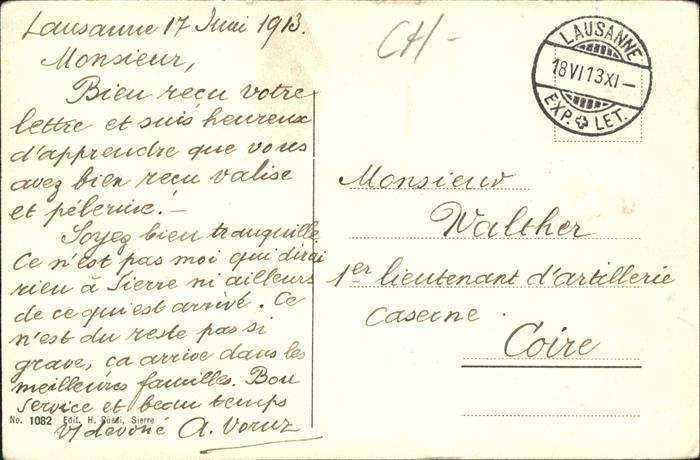 Lausanne 17 Juin 1913.
Monsieur,
Bien reçu votre
lettre et suis heureux
d'apprendre que vous
avez bien reçu valise
et pélerine. —
Soyez bien tranquille
Ce n'est pas moi qui dirai
rien à Sierre ni ailleurs
de ce qui est arrivé. Ce
n'est du reste pas si
grave, ça arrive dans les
meilleures familles. Bon
service et beau temps
No. 1082 Edit. H. Ruedi, Sierre
Vr dévoué A. Voruz
CH-
LAUSANNE
18 VI 13 XI —
EXP. LET.
Monsieur
Walther
1er lieutenant d'artillerie
Caserne.
Coire